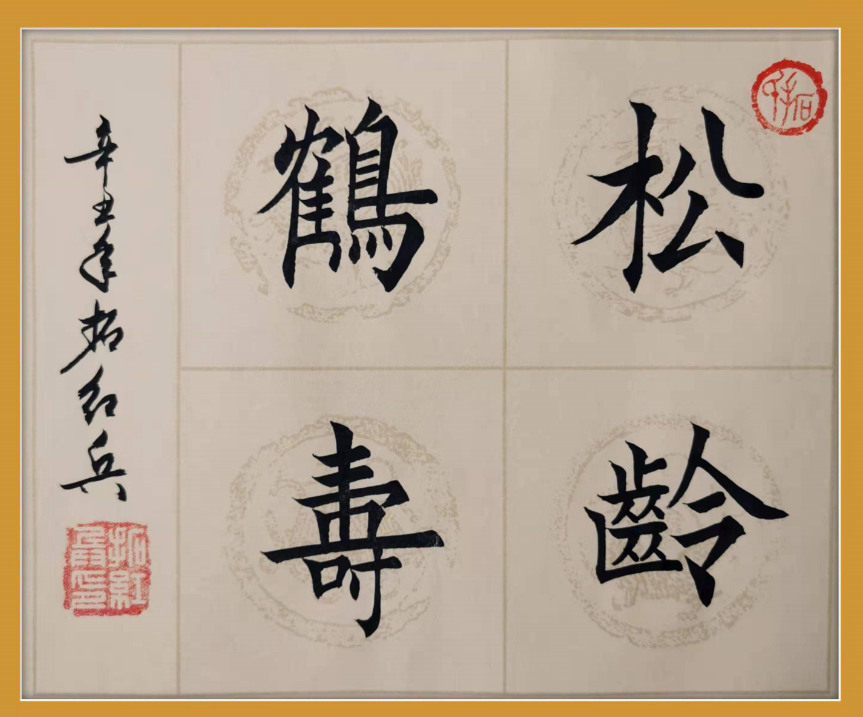 松齡
鶴壽
辛丑年拓红兵
拓紅兵印